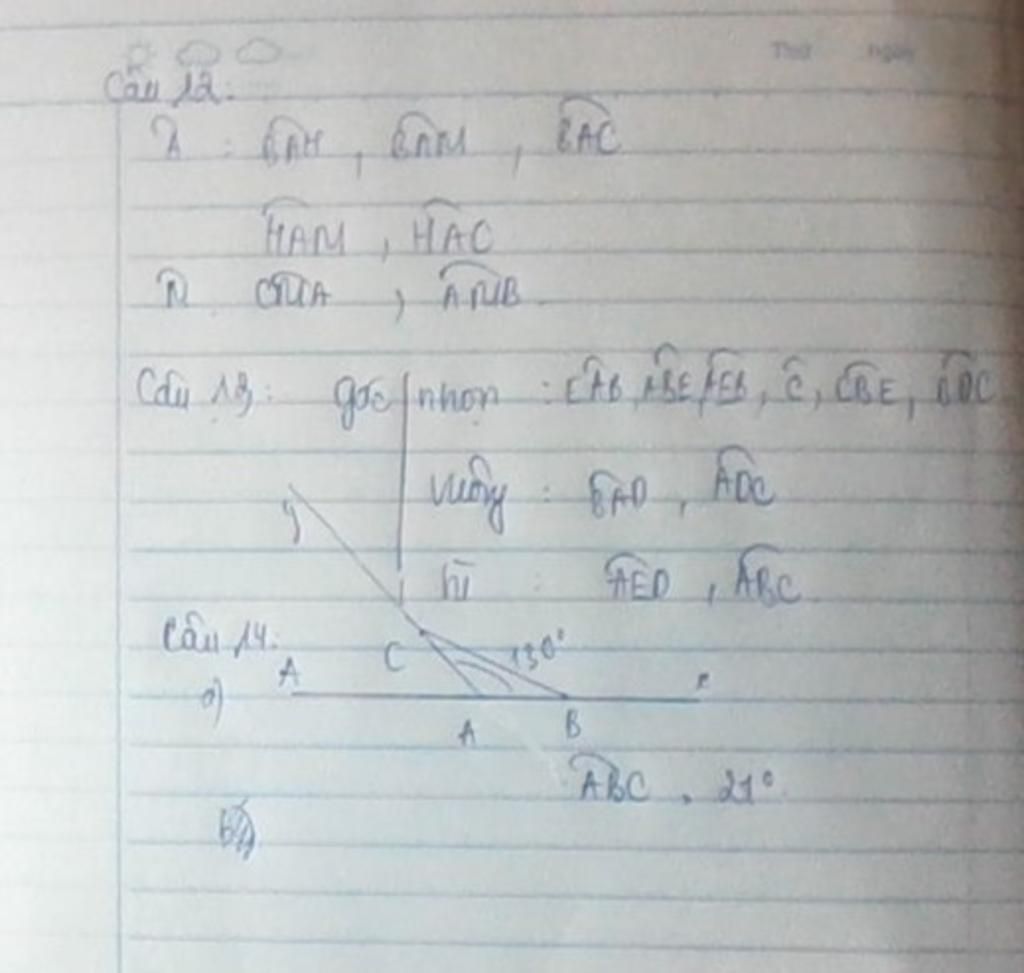 Thứ ngày
Câu 12:
A : BAH , BAM , BAC
HAM , HAC
M CMA , AMB
Câu 13: góc nhọn : EAB, ABE, AEB, C, CBE, BDC
vuông : BAD , ADC
tù : AED , ABC
Câu 14:
y
C 130°
a) A x
A B
ABC . 21°